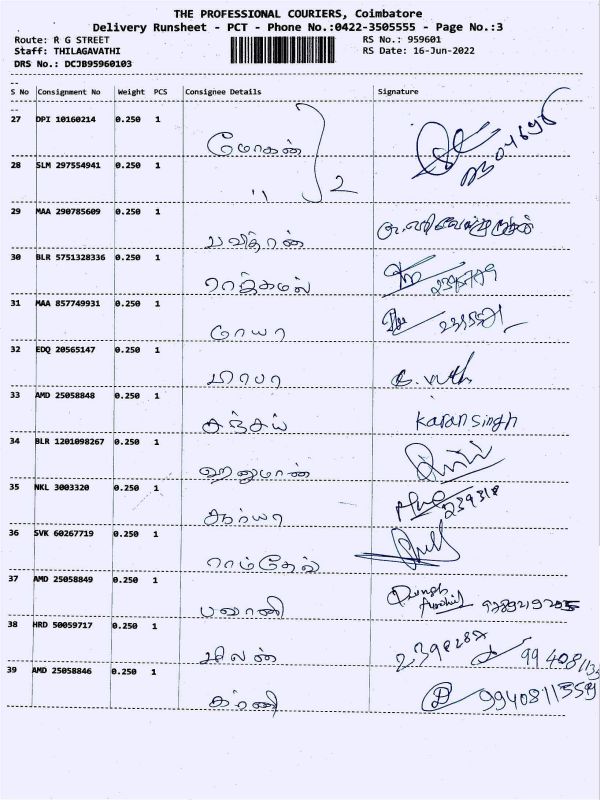 THE PROFESSIONAL COURIERS, Coimbatore
Delivery Runsheet - PCT - Phone No.:0422-3505555 - Page No.:3
Route: R G STREET RS No.: 959601
Staff: THILAGAVATHI RS Date: 16-Jun-2022
DRS No.: DCJB95960103
S No Consignment No Weight PCS Consignee Details Signature
27 DPI 10160214 0.250 1
மோகன்
28 SLM 297554941 0.250 1
" 2
29 MAA 290785609 0.250 1
பவித்ரான்
30 BLR 5751328336 0.250 1
ராஜ்கமல்
31 MAA 857749931 0.250 1
32 EDQ 20565147 0.250 1
33 AMD 25058848 0.250 1
சஞ்சய் Karan Singh
34 BLR 1201098267 0.250 1
ஹனுமான்
35 NKL 3003320 0.250 1
239318
36 SVK 60267719 0.250 1
ராம்தேவ்
37 AMD 25058849 0.250 1
பவானி
38 HRD 50059717 0.250 1
மிலன்
39 AMD 25058846 0.250 1
கர்ணி 9940811359